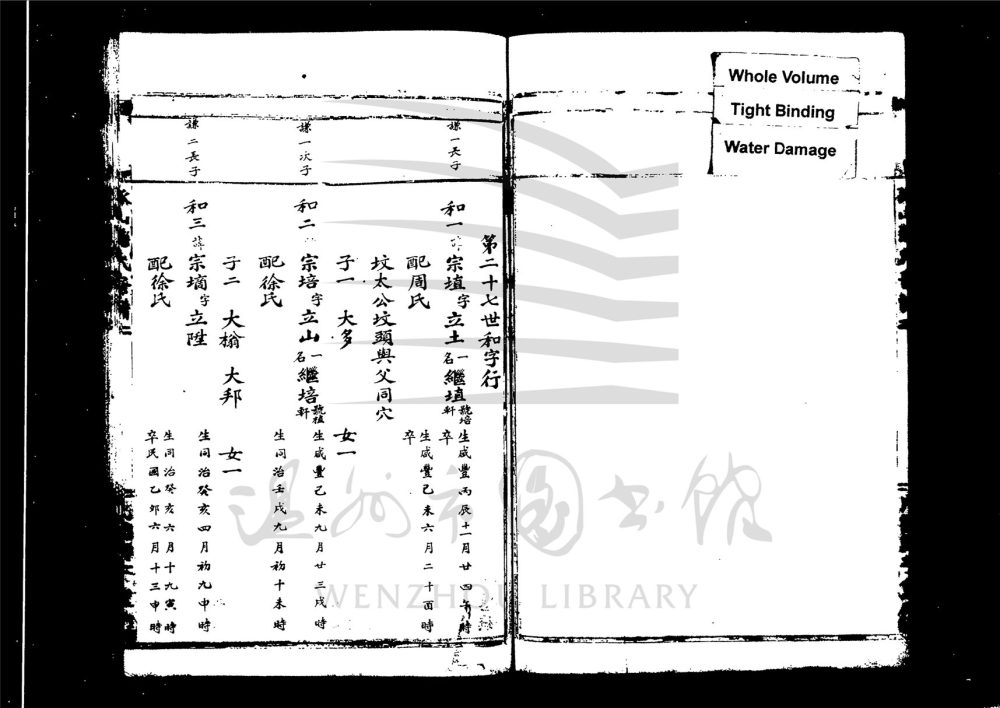 Whole Volume
Tight Binding
Water Damage
第二十七世和字行
謙一長子
和一諱宗埴字立土一名繼埴號培軒 生咸豐丙辰十一月廿四 時 卒
配周氏 生咸豐己未六月二十酉時 卒
坟太公坟頭與父同穴
子一 大多 女一
謙一次子
和二 宗培字立山一名繼培號植軒 生咸豐己未九月廿三戌時
配徐氏 生同治壬戌九月初十未時
子二 大榒 大邦 女一
謙二長子
和三諱宗墑字立陞 生同治癸亥四月初九申時
配徐氏 生同治癸亥六月十九寅時 卒民國乙卯六月十三申時
温州市图书馆
WENZHOU LIBRARY